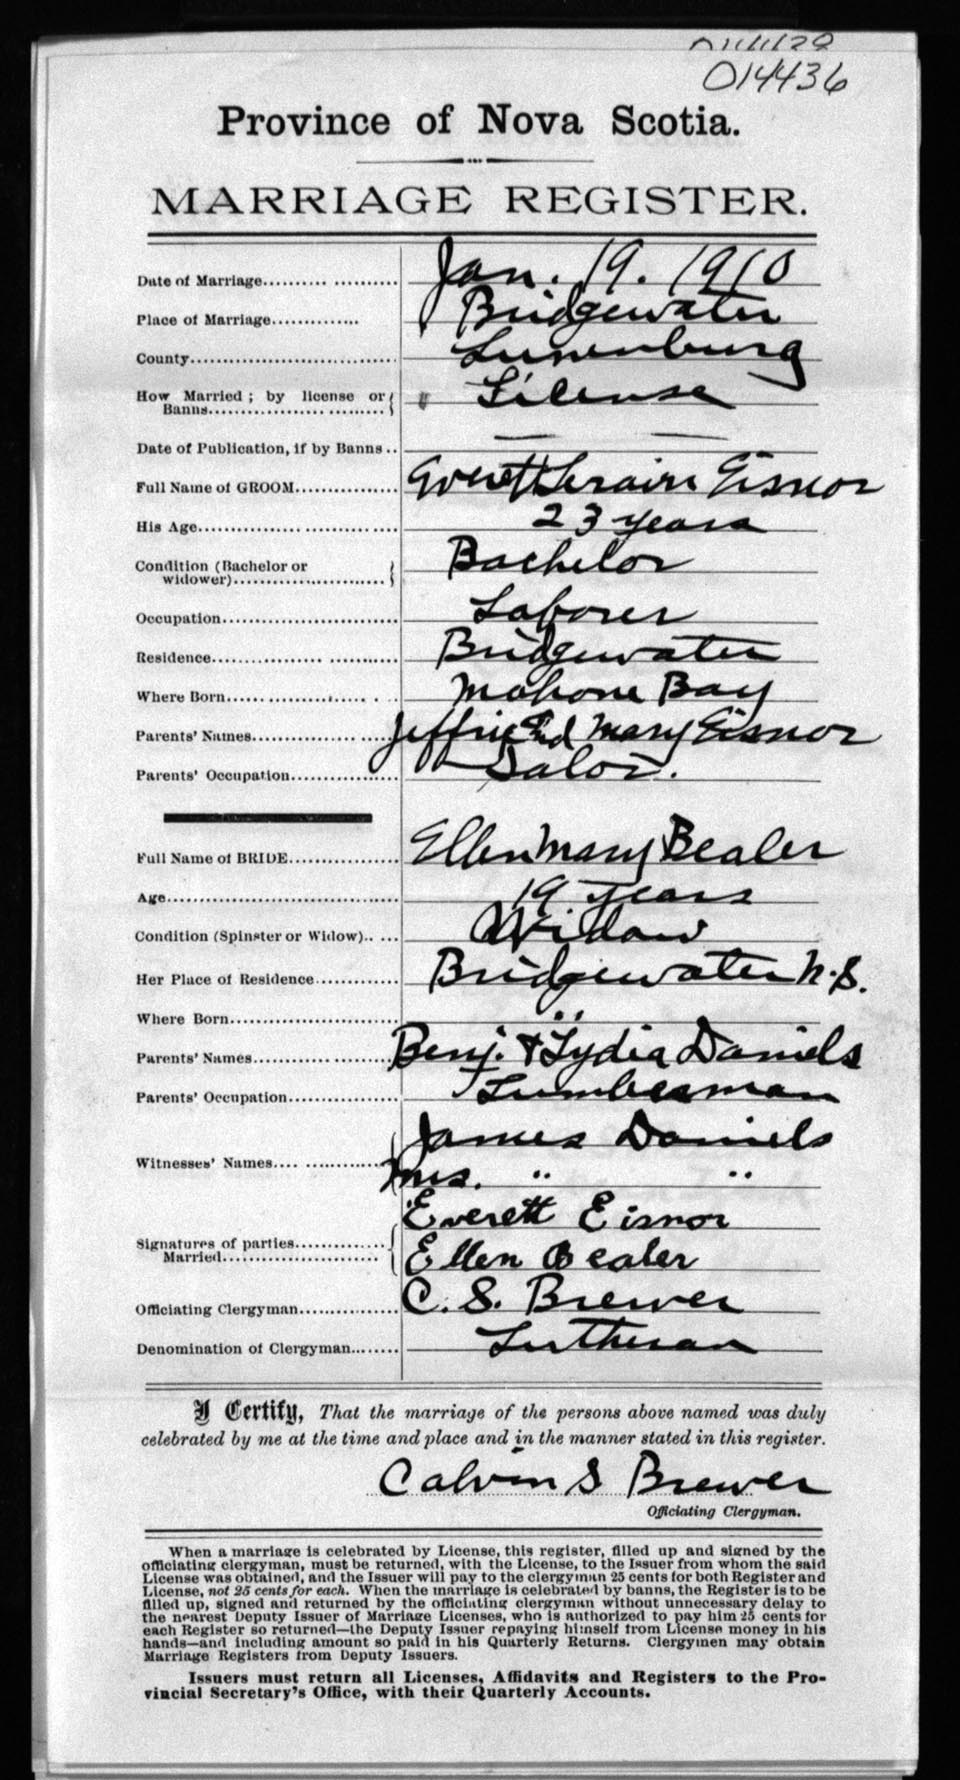 014436
Province of Nova Scotia.
MARRIAGE REGISTER.
Date of Marriage Jan. 19. 1910
Place of Marriage Bridgewater
County Lunenburg
How Married ; by license or Banns License
Date of Publication, if by Banns — —
Full Name of GROOM Everett Eisnor
His Age 23 years
Condition (Bachelor or widower) Bachelor
Occupation Laborer
Residence Bridgewater
Where Born Mahone Bay
Parents' Names Mary Eisnor
Parents' Occupation Salor.
Full Name of BRIDE Ellen Mary Bealer
Age 19 years
Condition (Spinster or Widow) Widow
Her Place of Residence Bridgewater N.S.
Where Born "
Parents' Names Benj. & Lydia Daniels
Parents' Occupation Lumberman
Witnesses' Names James Daniels
Mrs. " "
Signatures of parties Everett Eisnor
Married Ellen Bealer
Officiating Clergyman C. S. Brewer
Denomination of Clergyman Lutheran
I Certify, That the marriage of the persons above named was duly
celebrated by me at the time and place and in the manner stated in this register.
Calvin S Brewer
Officiating Clergyman.
When a marriage is celebrated by License, this register, filled up and signed by the
officiating clergyman, must be returned, with the License, to the Issuer from whom the said
License was obtained, and the Issuer will pay to the clergyman 25 cents for both Register and
License, not 25 cents for each. When the marriage is celebrated by banns, the Register is to be
filled up, signed and returned by the officiating clergyman without unnecessary delay to
the nearest Deputy Issuer of Marriage Licenses, who is authorized to pay him 25 cents for
each Register so returned—the Deputy Issuer repaying himself from License money in his
hands—and including amount so paid in his Quarterly Returns. Clergymen may obtain
Marriage Registers from Deputy Issuers.
Issuers must return all Licenses, Affidavits and Registers to the Pro-
vincial Secretary's Office, with their Quarterly Accounts.